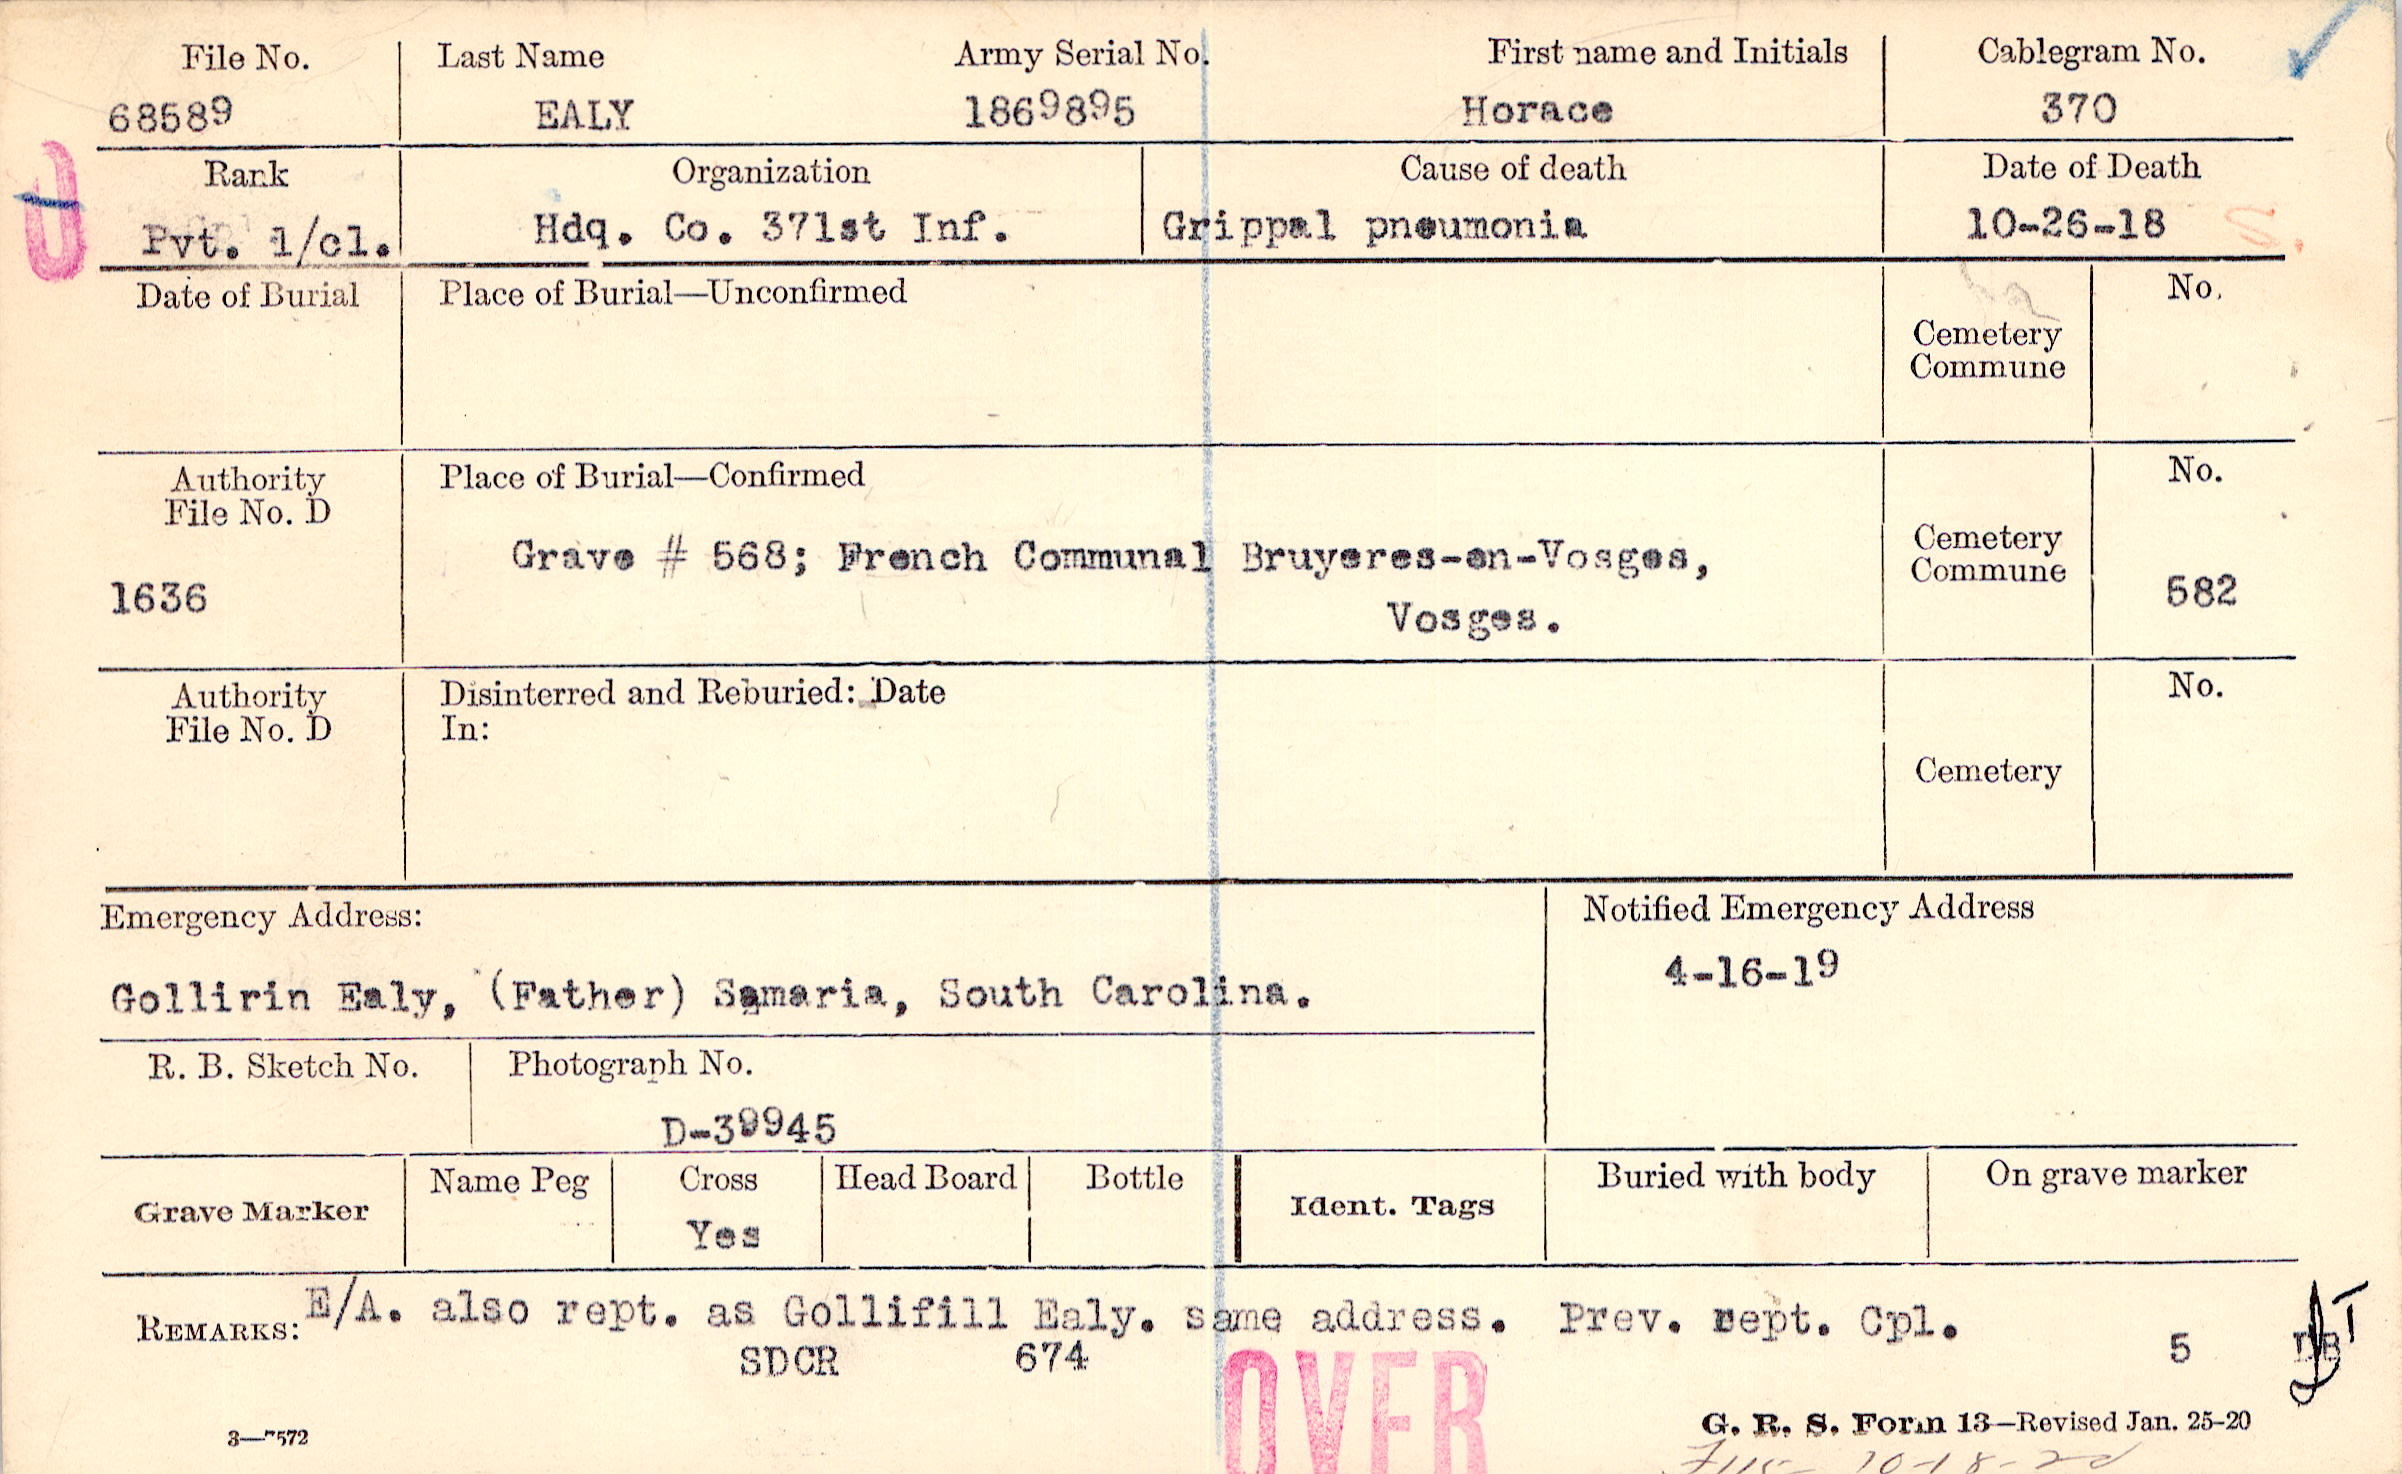 File No. Last Name Army Serial No. First name and Initials Cablegram No.
68589 EALY 1869895 Horace 370
Rank Organization Cause of death Date of Death
Pvt. 1/cl. Hdq. Co. 371st Inf. Grippal pneumonia 10-26-18 S.
Date of Burial Place of Burial—Unconfirmed No.
Cemetery
Commune
Authority Place of Burial—Confirmed No.
File No. D
Grave # 568; French Communal Bruyeres-en-Vosges, Cemetery
Commune
1636 Vosges. 582
Authority Disinterred and Reburied: Date No.
File No. D In:
Cemetery
Emergency Address: Notified Emergency Address
4-16-19
Gollirin Ealy, (Father) Samaria, South Carolina.
R. B. Sketch No. Photograph No.
D-39945
Grave Marker Name Peg Cross Head Board Bottle Ident. Tags Buried with body On grave marker
Yes
REMARKS: E/A. also rept. as Gollifill Ealy. same address. Prev. rept. Cpl.
SDCR 674 5
OVER
3—7572 G. R. S. Form 13—Revised Jan. 25-20
10-18-22